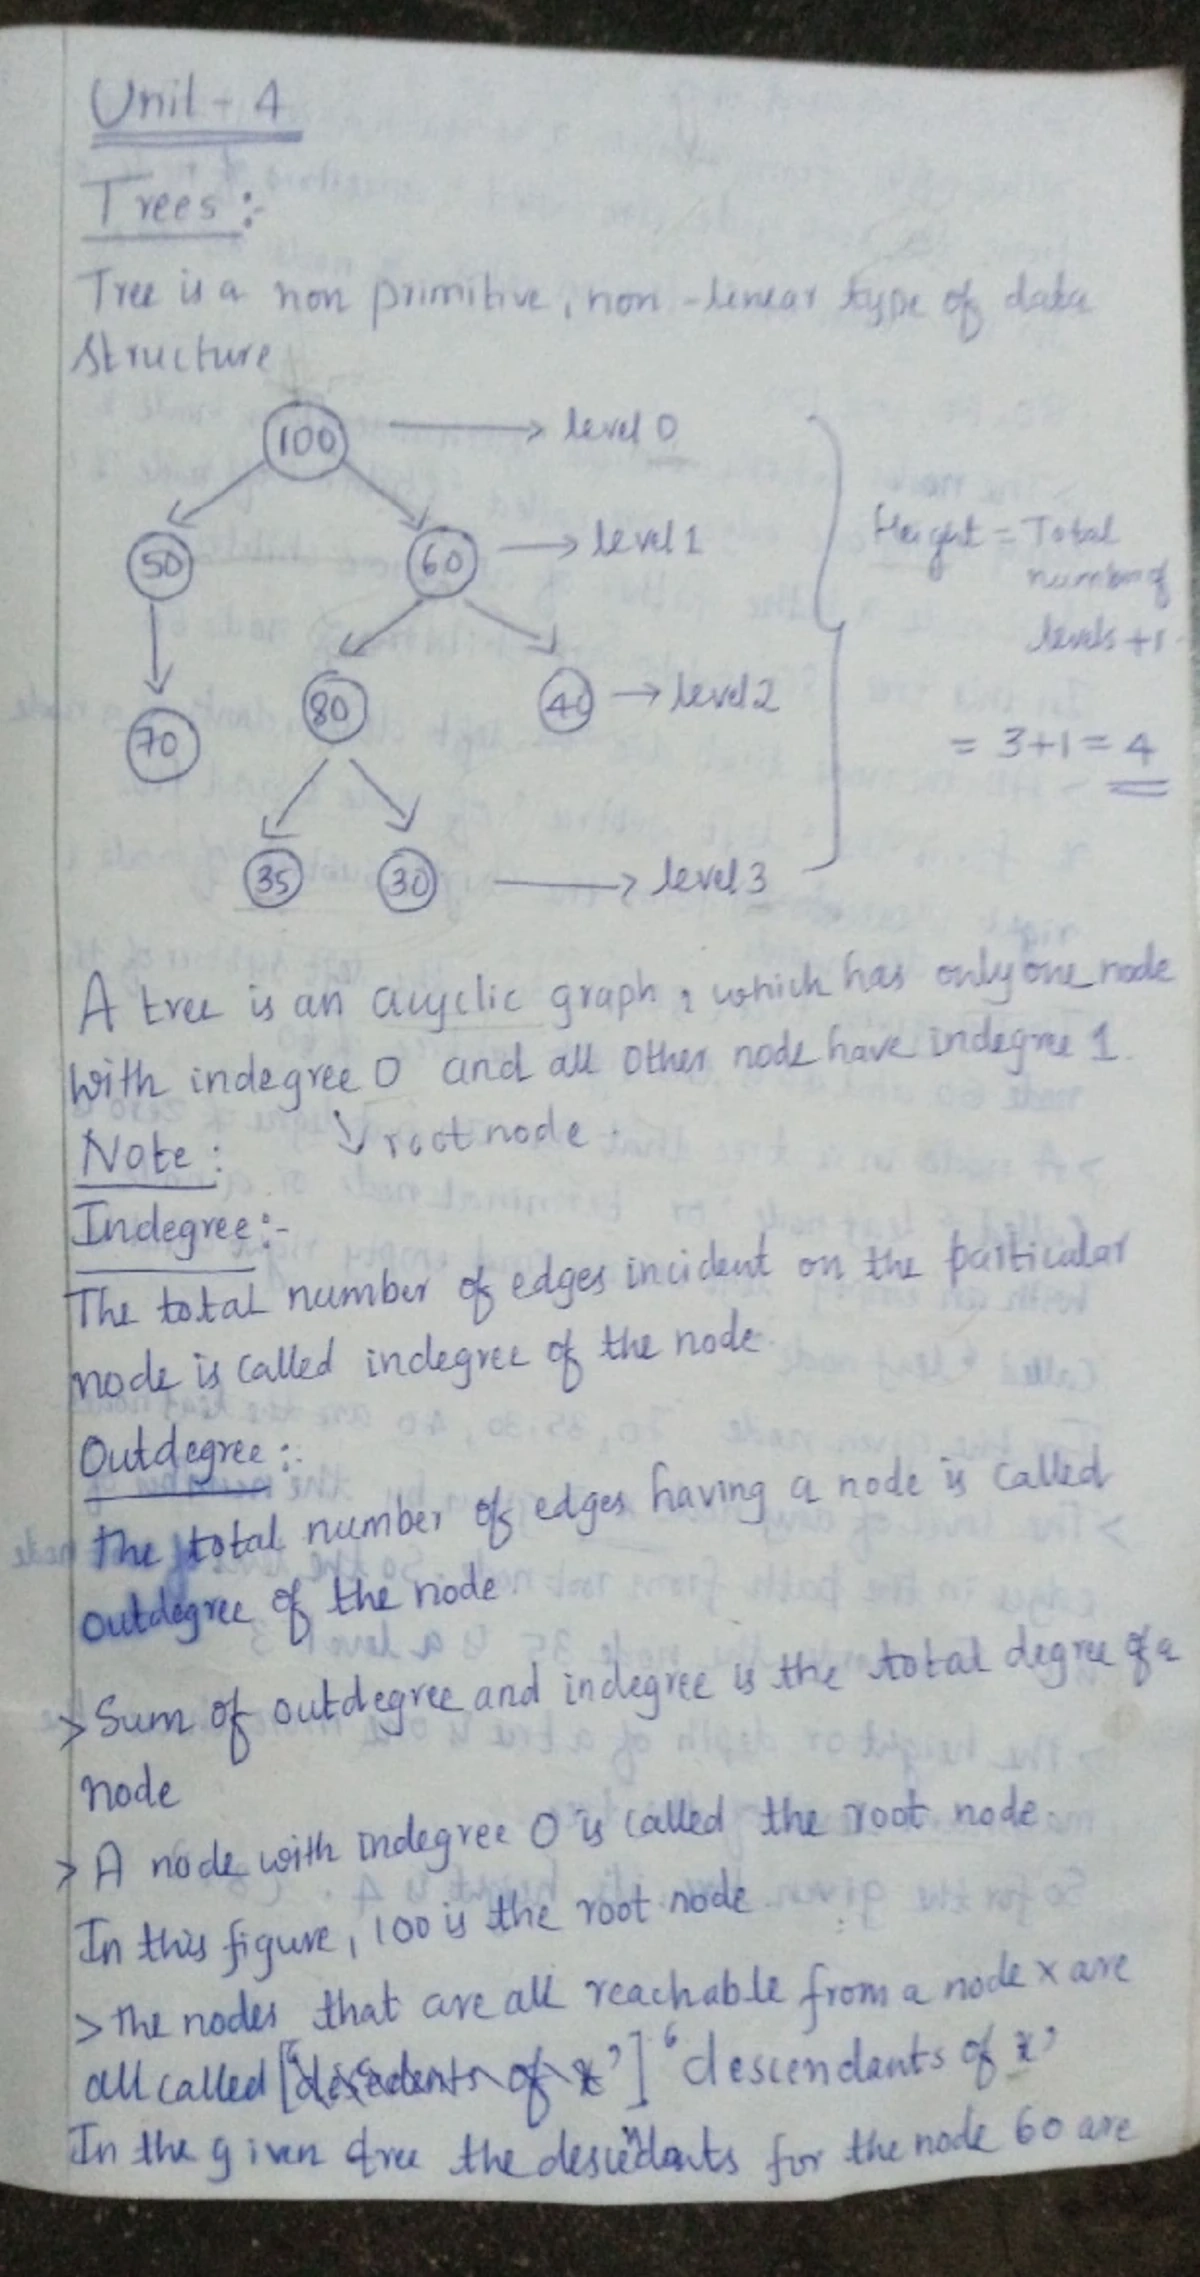 Unit - 4
Trees :-
Tree is a non primitive, non-linear type of data
structure
100 → level 0
50 60 → level 1
Height = Total
number of
levels +1
70 80 40 → level 2
= 3+1 = 4
35 30 → level 3
A tree is an acyclic graph, which has only one node
with indegree 0 and all other node have indegree 1.
↘ root node.
Note :
Indegree :-
The total number of edges incident on the particular
node is called indegree of the node.
Outdegree :-
The total number of edges having a node is called
outdegree of the node.
> Sum of outdegree and indegree is the total degree of a
node
> A node with indegree 0 is called the root node.
In this figure, 100 is the root node.
> The nodes that are all reachable from a node x are
all called ['desedents of x'] 'descendants of x'
In the given tree the desiendants for the node 60 are